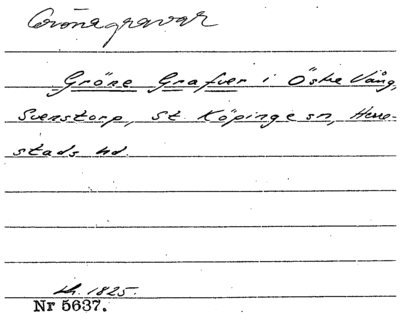 Grönegravar
Gröne Grafver i Öske Vång,
Svenstorp, St. Köpinge sn, Herre-
stads hd.
1825.
Nr 5637.